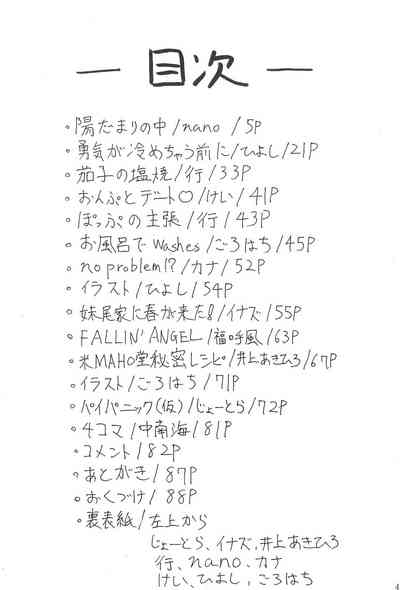 — 目次 —
・陽だまりの中/nano/5P
・勇気が冷めちゃう前に/ひよし/21P
・茄子の塩焼/行/33P
・おんぷとデート♡/けい/41P
・ぽっぷの主張/行/43P
・お風呂でwashes/ごろはち/45P
・no problem!?/カナ/52P
・イラスト/ひよし/54P
・妹尾家に春が来た!/イナズ/55P
・FALLIN' ANGEL/福呼風/63P
・米MAHO堂秘密レシピ/井上あきひろ/67P
・イラスト/ごろはち/71P
・パイパニック(仮)/じょーとら/72P
・4コマ/中南海/81P
・コメント/82P
・あとがき/87P
・おくづけ/88P
・裏表紙/左上から
じょーとら、イナズ、井上あきひろ
行、nano、カナ
けい、ひよし、ごろはち
4